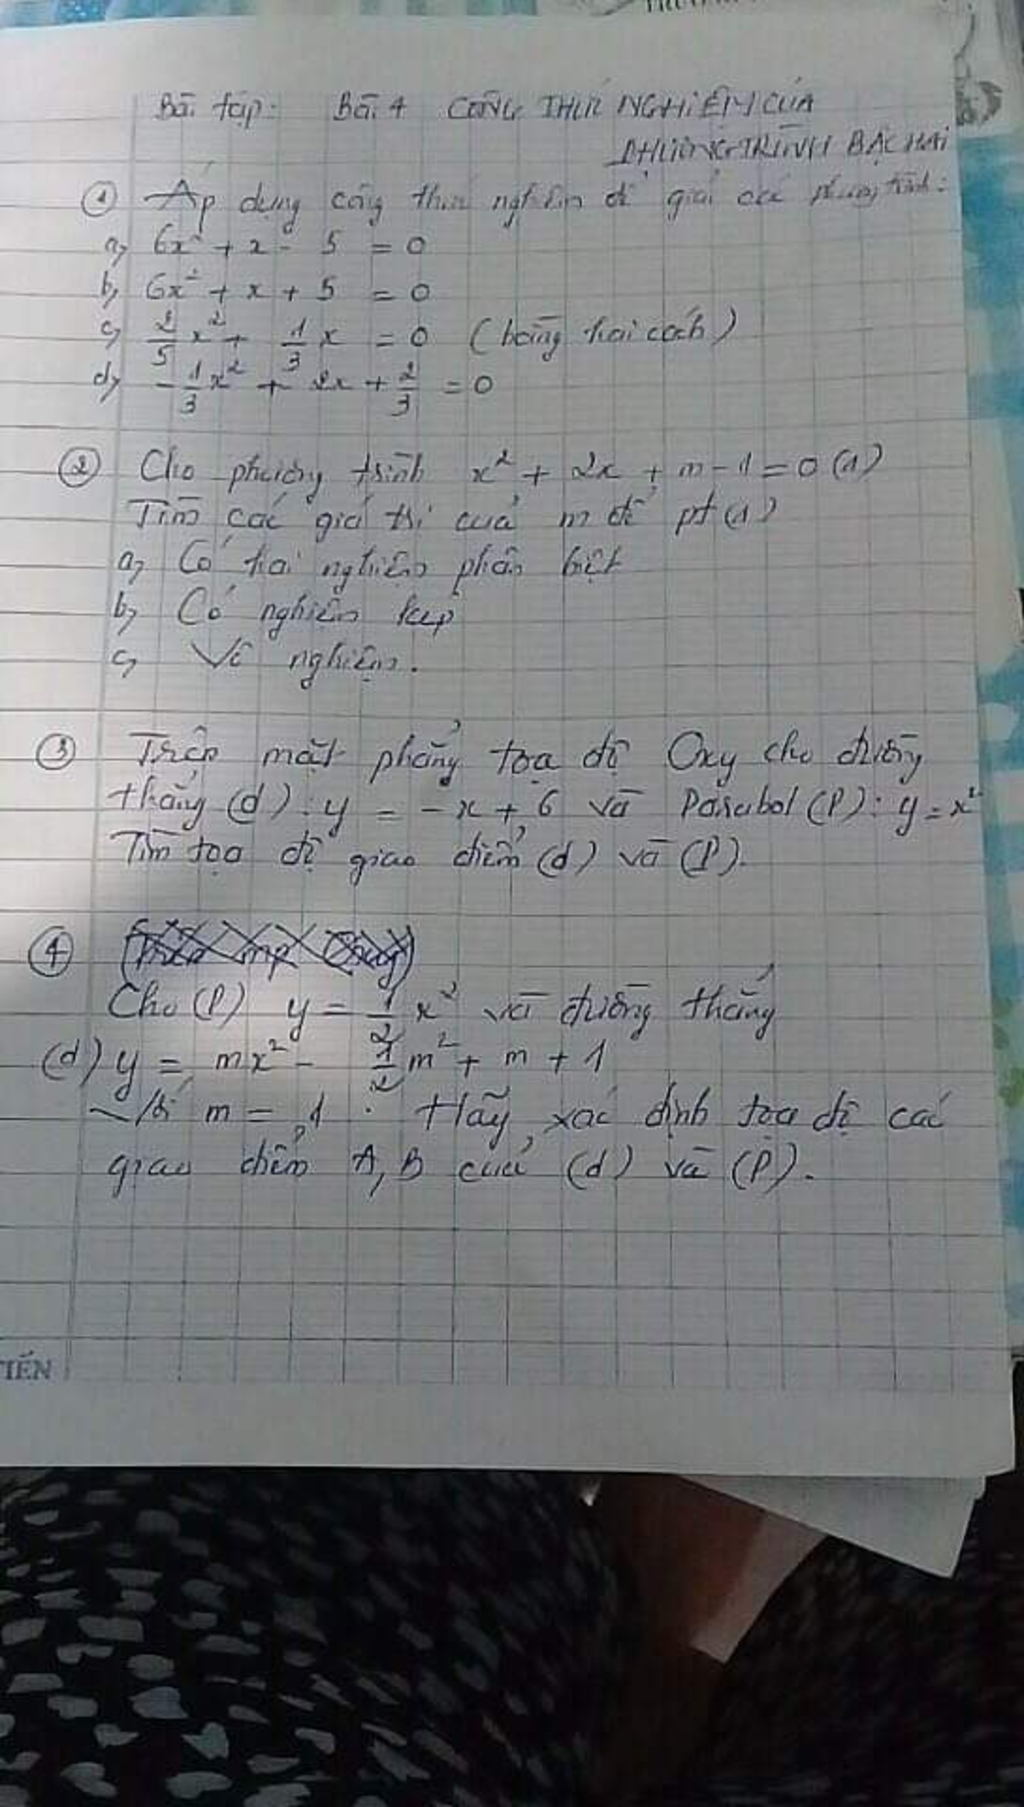 Bài tập: Bài 4 CÔNG THỨC NGHIỆM CỦA
PHƯƠNG TRÌNH BẬC HAI
① Áp dụng công thức nghiệm để giải các phương trình:
a, 6x² + x - 5 = 0
b, 6x² + x + 5 = 0
c, 2/5 x² + 1/3 x = 0 (bằng hai cách)
d, -1/3 x² + 2x + 2/3 = 0
② Cho phương trình x² + 2x + m - 1 = 0 (1)
Tìm các giá trị của m để pt (1)
a, Có hai nghiệm phân biệt
b, Có nghiệm kép
c, Vô nghiệm.
③ Trên mặt phẳng tọa độ Oxy cho đường
thẳng (d): y = -x + 6 và Parabol (P): y = x²
Tìm tọa độ giao điểm (d) và (P).
④
Cho (P) y = 1/2 x² và đường thẳng
(d) y = mx² - 1/2 m² + m + 1
Với m = 1. Hãy xác định tọa độ các
giao điểm A, B của (d) và (P).
TIẾN